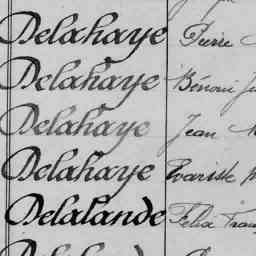 Delahaye Pierre
Delahaye Bénoni
Delahaye Jean
Delahaye Évariste
Delalande Félix Fran